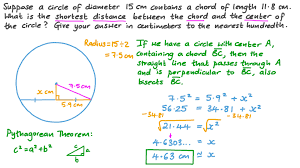 Suppose a circle of diameter 15 cm contains a chord of length 11.8 cm.
What is the shortest distance between the chord and the center of
the circle? Give your answer in centimeters to the nearest hundredth.
Radius = 15 ÷ 2
= 7.5 cm
7.5 cm
x cm
5.9 cm
Pythagorean Theorem:
c² = a² + b²
c
a
b
If we have a circle with center A,
containing a chord BC, then the
straight line that passes through A
and is perpendicular to BC, also
bisects BC.
7.5² = 5.9² + x²
56.25 = 34.81 + x²
-34.81 -34.81
√21.44 = √x²
4.6303... = x
4.63 cm ≃ x